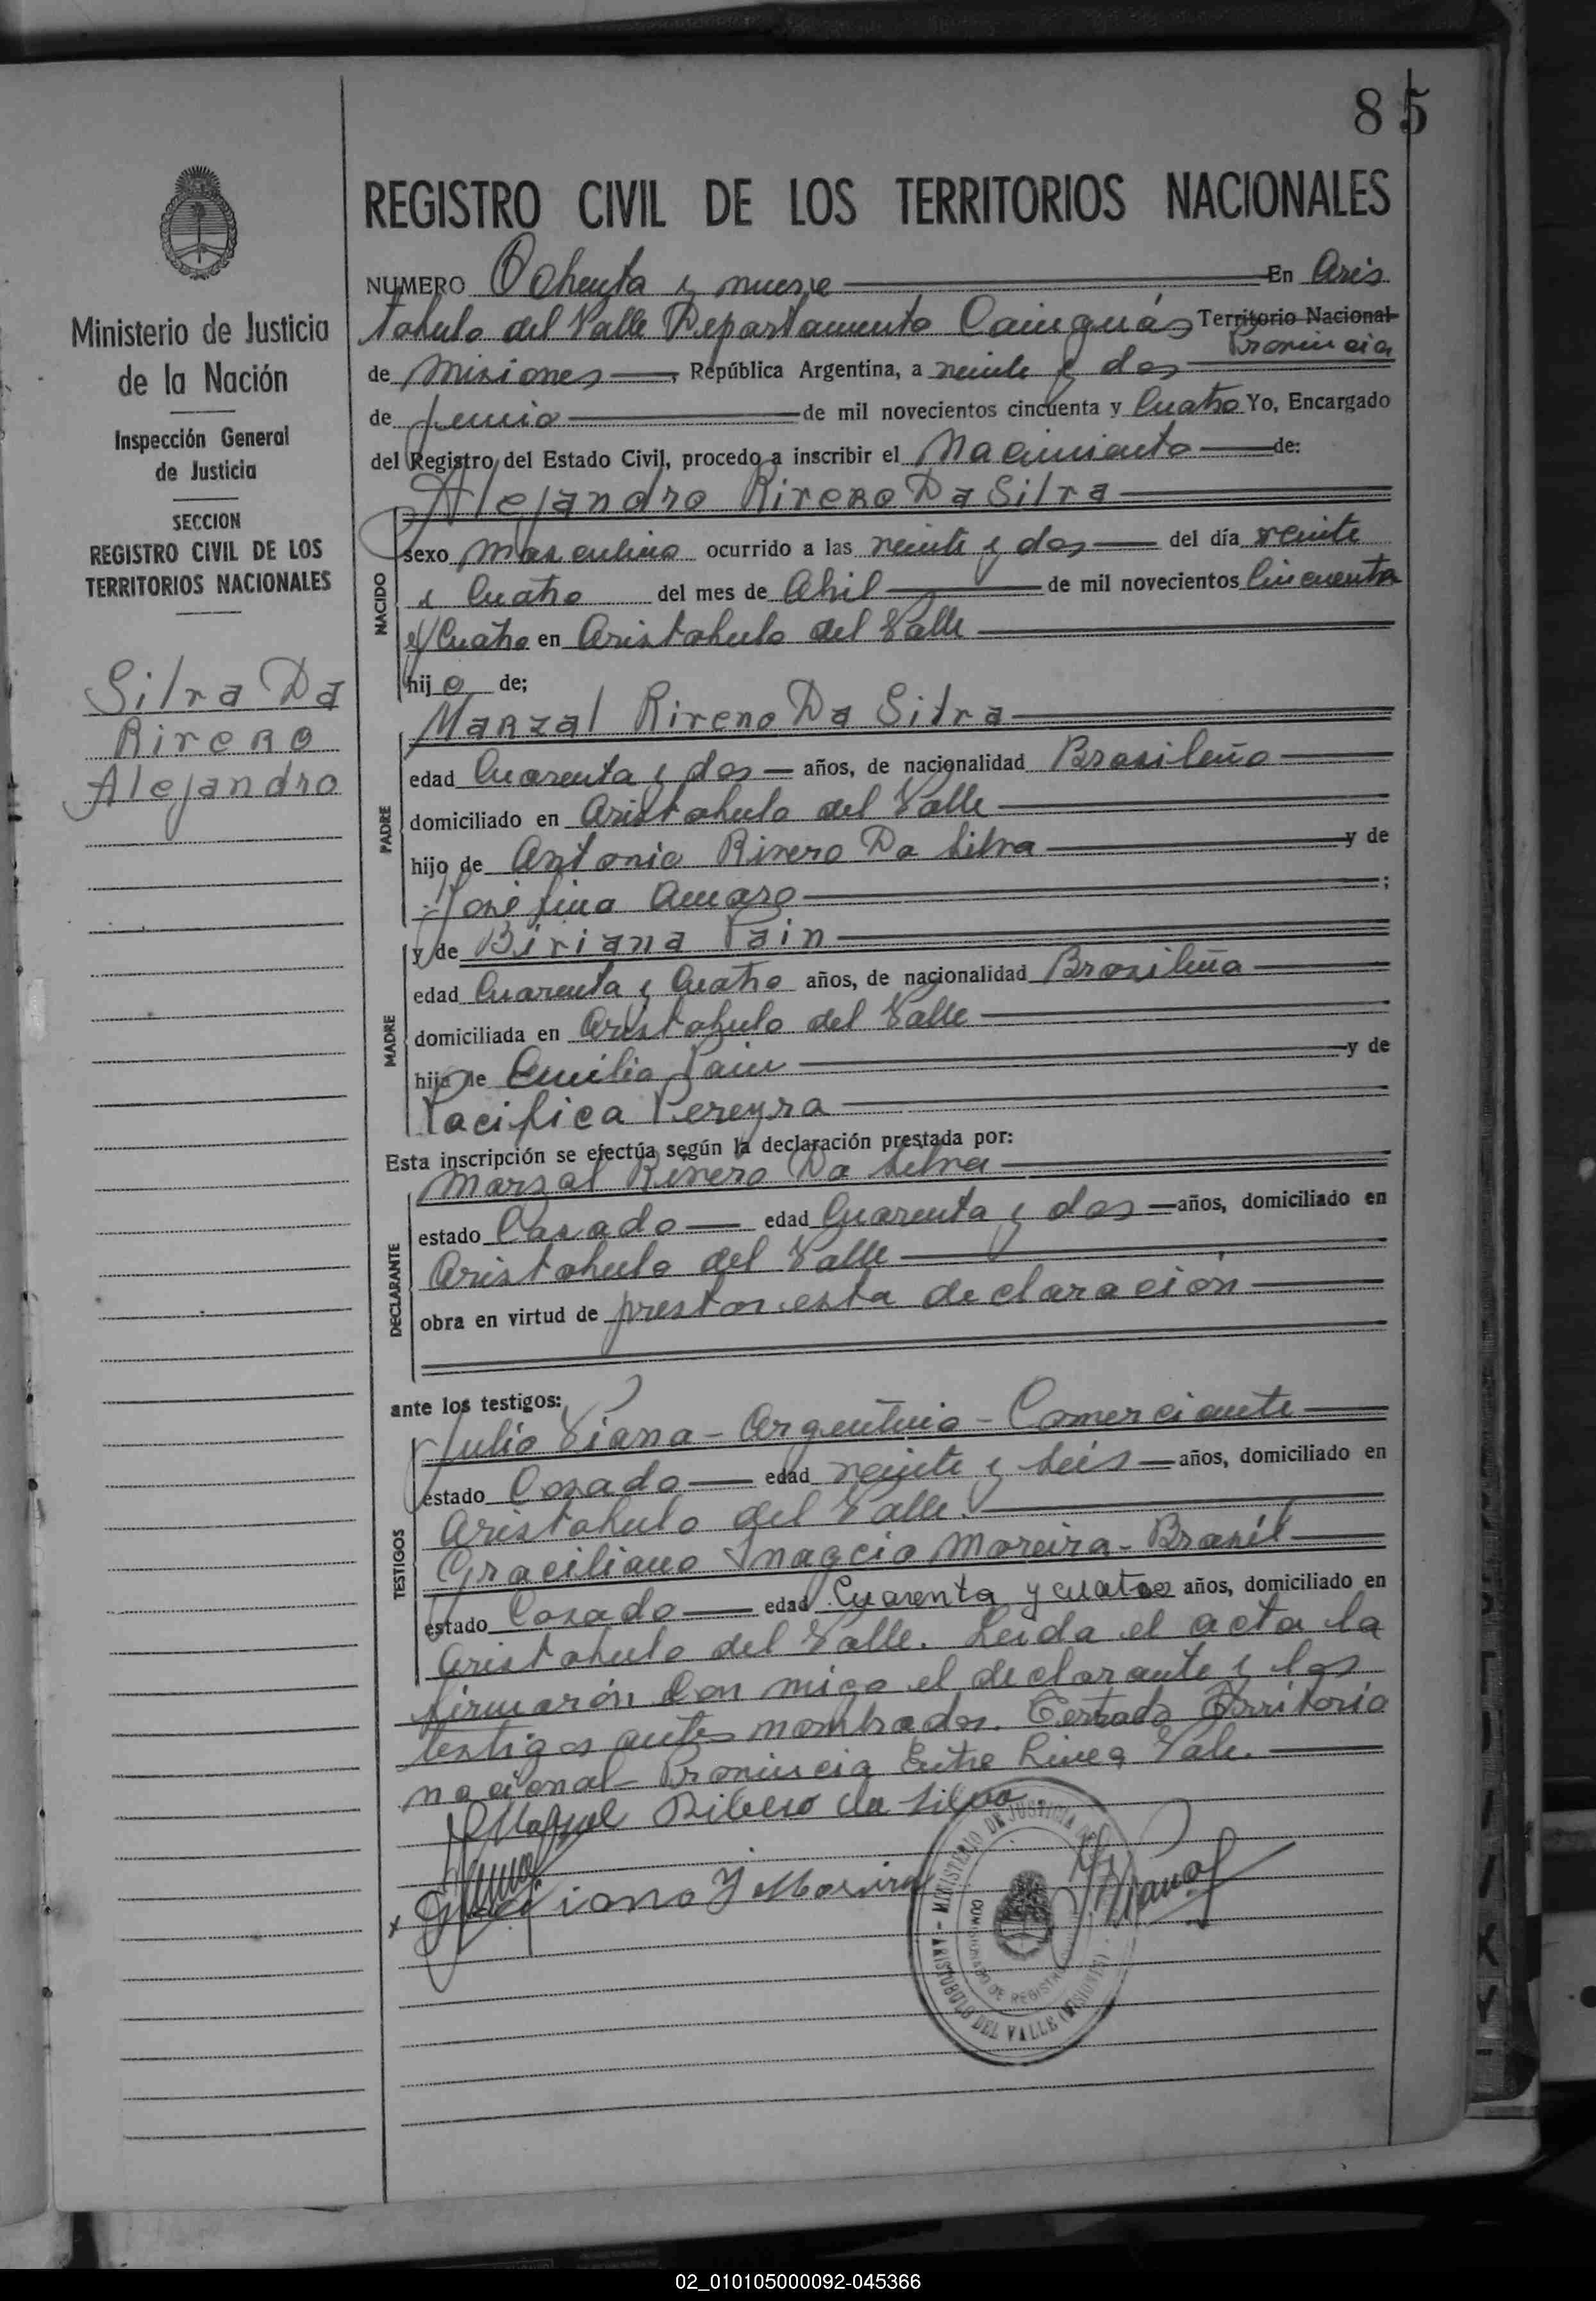 85
REGISTRO CIVIL DE LOS TERRITORIOS NACIONALES
Ministerio de Justicia
de la Nación
Inspección General
de Justicia
SECCION
REGISTRO CIVIL DE LOS
TERRITORIOS NACIONALES
Silva Da
Rivero
Alejandro
NUMERO Ochenta y nueve En Aris
tobulo del Valle Departamento Cainguás Territorio Nacional
Provincia
de Misiones, República Argentina, a veinte y dos
de junio de mil novecientos cincuenta y Cuatro Yo, Encargado
del Registro del Estado Civil, procedo a inscribir el Nacimiento de:
Alejandro Rivero Da Silva
NACIDO
sexo masculino ocurrido a las veinte y dos del día veinte
y Cuatro del mes de Abril de mil novecientos Cincuenta
y Cuatro en Aristobulo del Valle
hijo de;
Marzal Rivero Da Silva
PADRE
edad Cuarenta y dos años, de nacionalidad Brasileño
domiciliado en Aristobulo del Valle
hijo de Antonio Rivero Da Silva y de
Josefina Amaro ;
y de Biviana Pain
MADRE
edad Cuarenta y Cuatro años, de nacionalidad Brasileña
domiciliada en Aristobulo del Valle
hija de Emilio Pain y de
Pacifica Pereyra
Esta inscripción se efectúa según la declaración prestada por:
Marzal Rivero Da Silva
DECLARANTE
estado Casado edad Cuarenta y dos años, domiciliado en
Aristobulo del Valle
obra en virtud de prestar esta declaración
ante los testigos:
Julio Viana - Argentino - Comerciante
TESTIGOS
estado Casado edad veinte y seis años, domiciliado en
Aristobulo del Valle.
Graciliano Inagcio Moreira - Brasil
estado Casado edad Cuarenta y cuatro años, domiciliado en
Aristobulo del Valle. Leida el acta la
firmarón Con migo el declarante y los
testigos antes nombrados. Testado Territorio
nacional - Provincia Entre Linea Vale.
Ribeiro da Silva
Moreira
MINISTERIO DE JUSTICIA
ARISTOBULO DEL VALLE (MISIONES)
02_010105000092-045366